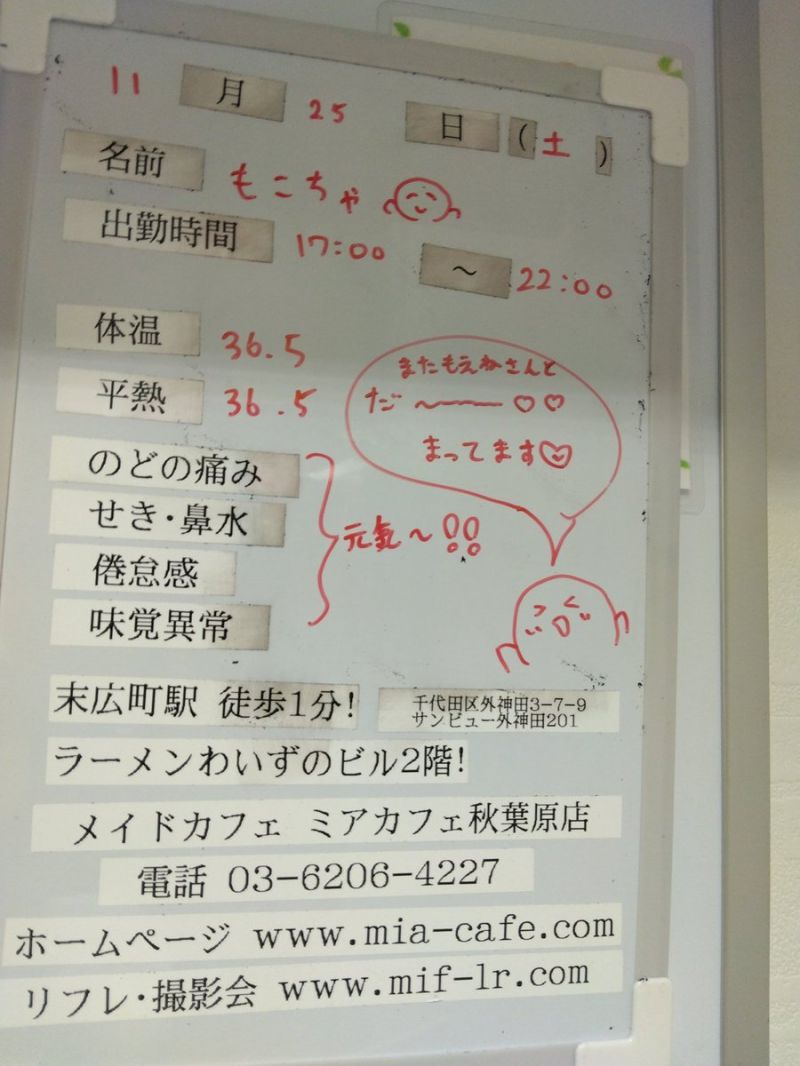 11 月 25 日 (土)
名前 もこちゃ
出勤時間 17:00 ～ 22:00
体温 36.5
平熱 36.5
またもえかさんと
だ〜 ♡♡
まってます♡
のどの痛み
せき・鼻水
倦怠感
味覚異常
元気～!!
末広町駅 徒歩1分!
千代田区外神田3-7-9
サンビュー外神田201
ラーメンわいずのビル2階!
メイドカフェ ミアカフェ秋葉原店
電話 03-6206-4227
ホームページ www.mia-cafe.com
リフレ・撮影会 www.mif-lr.com